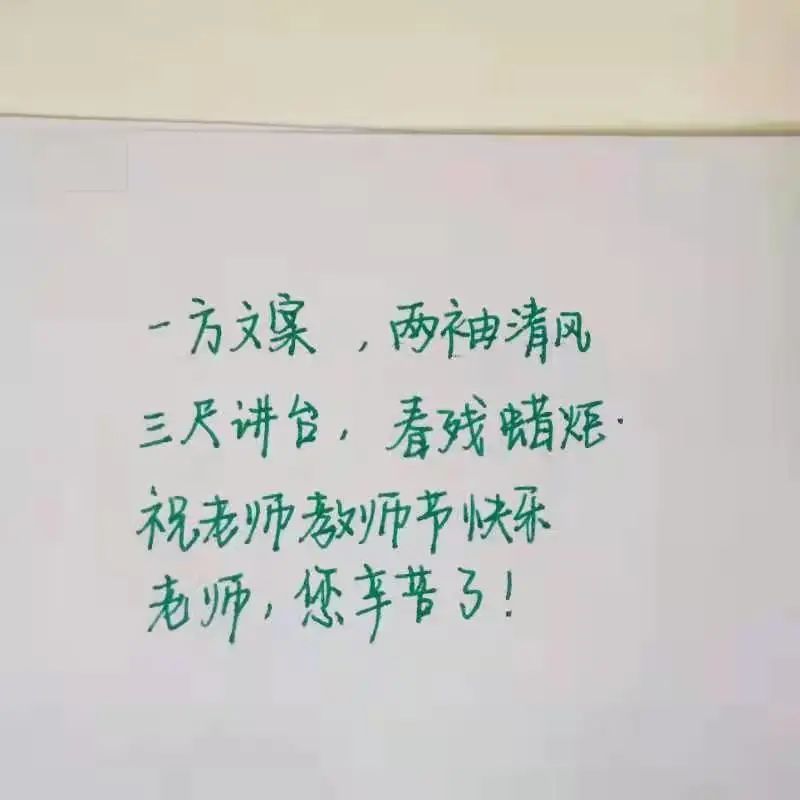 一方文案，两袖清风
三尺讲台，春残蜡炬.
祝老师教师节快乐
老师，您辛苦了！